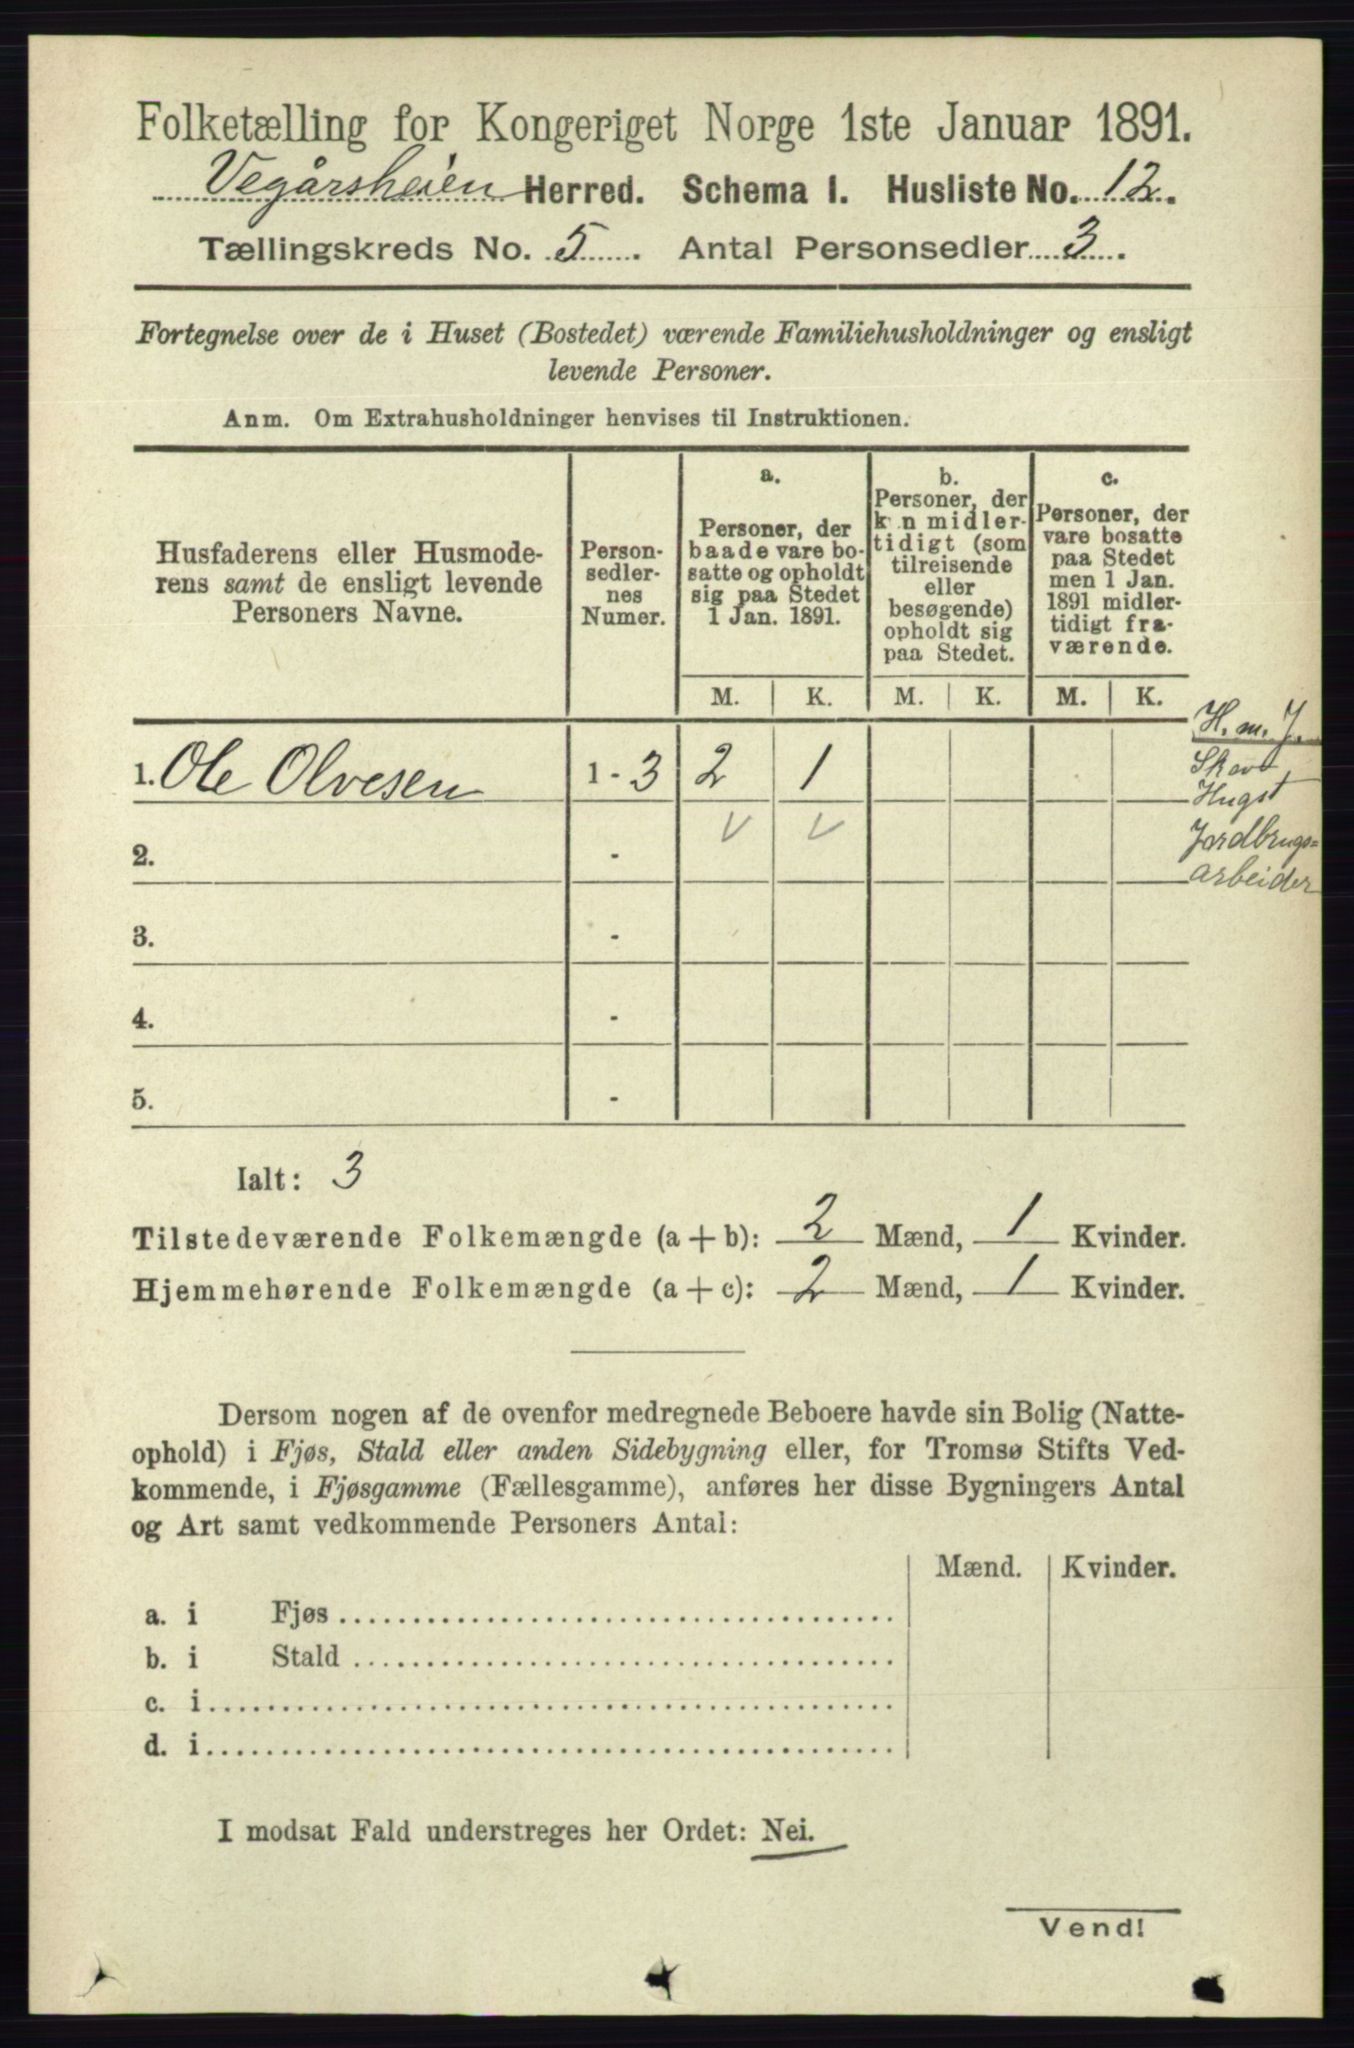 Folketælling for Kongeriget Norge 1ste Januar 1891.
Vegårsheien Herred. Schema 1. Husliste No. 12.
Tællingskreds No. 5. Antal Personsedler 3.
Fortegnelse over de i Huset (Bostedet) værende Familiehusholdninger og ensligt
levende Personer.
Anm. Om Extrahusholdninger henvises til Instruktionen.
Husfaderens eller Husmode-
rens samt de ensligt levende
Personers Navne.
Person-
sedler-
nes
Numer.
a.
Personer, der
baade vare bo-
satte og opholdt
sig paa Stedet
1 Jan. 1891.
b.
Personer, der
kun midler-
tidigt (som
tilreisende
eller
besøgende)
opholdt sig
paa Stedet.
c.
Personer, der
vare bosatte
paa Stedet
men 1 Jan.
1891 midler-
tidigt fra-
værende.
M. K. M. K. M. K.
H. m. J.
Skov
Hugst
Jordbrugs=
arbeider
1. Ole Olvesen 1 - 3 2 1
V V
2. -
3. -
4. -
5. -
Ialt: 3
Tilstedeværende Folkemængde (a + b): 2 Mænd, 1 Kvinder.
Hjemmehørende Folkemængde (a + c): 2 Mænd, 1 Kvinder.
Dersom nogen af de ovenfor medregnede Beboere havde sin Bolig (Natte-
ophold) i Fjøs, Stald eller anden Sidebygning eller, for Tromsø Stifts Ved-
kommende, i Fjøsgamme (Fællesgamme), anføres her disse Bygningers Antal
og Art samt vedkommende Personers Antal:
Mænd. Kvinder.
a. i Fjøs
b. i Stald
c. i
d. i
I modsat Fald understreges her Ordet: Nei.
Vend!